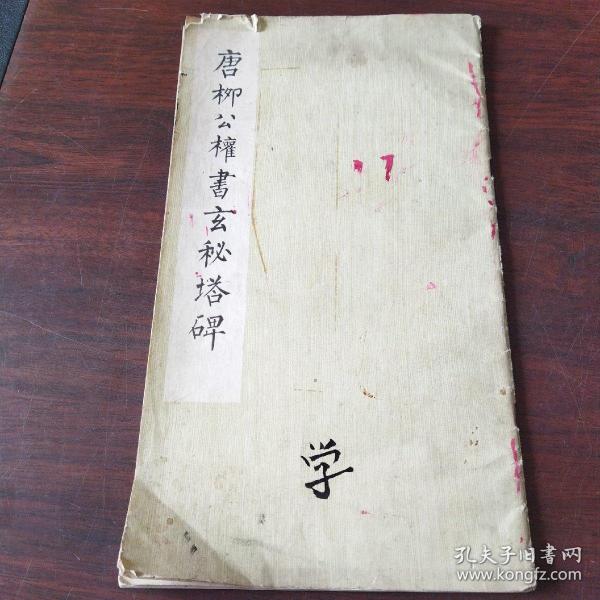 唐柳公權書玄秘塔碑
学
孔夫子旧書网
www.kongfz.com